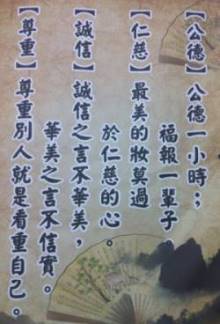 【公德】公德一小時；
福報一輩子，
【仁慈】最美的妝莫過
於仁慈的心。
【誠信】誠信之言不華美，
華美之言不信實。
【尊重】尊重別人就是看重自己。